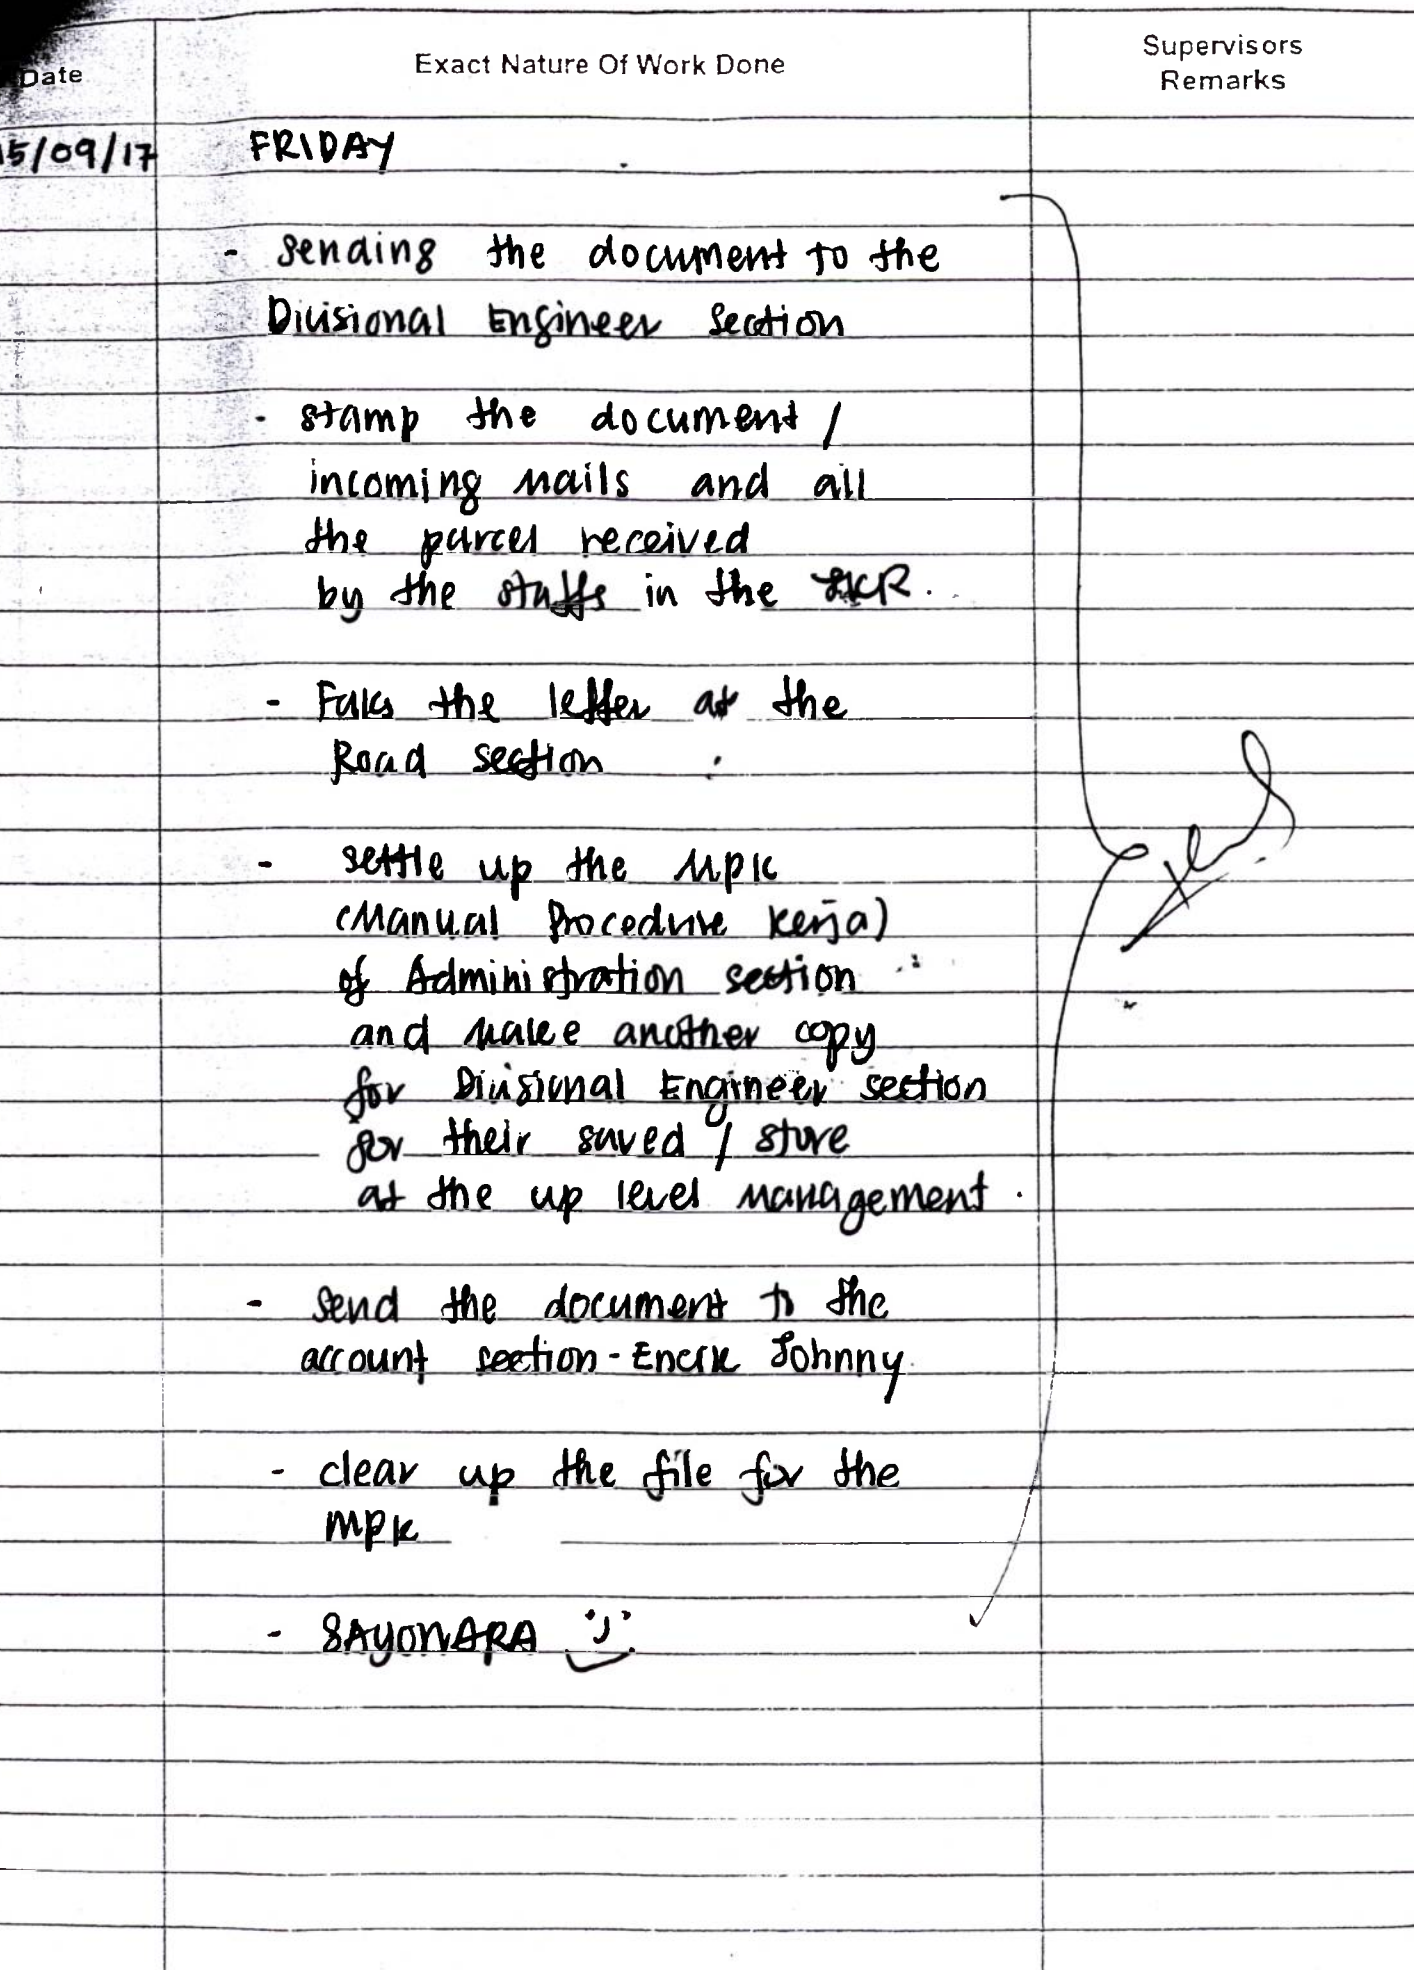 Date
Exact Nature Of Work Done
Supervisors
Remarks
15/09/17
FRIDAY
- Sending the document to the
Divisional Engineer Section
- stamp the document /
incoming mails and all
the parcel received
by the staffs in the JKR.
- Faks the letter at the
Road section
- settle up the MPK
(Manual Procedure Kerja)
of Administration section
and make another copy
for Divisional Engineer section
for their saved / store
at the up level management.
- Send the document to the
account section - Encik Johnny
- clear up the file for the
MPK
- SAYONARA